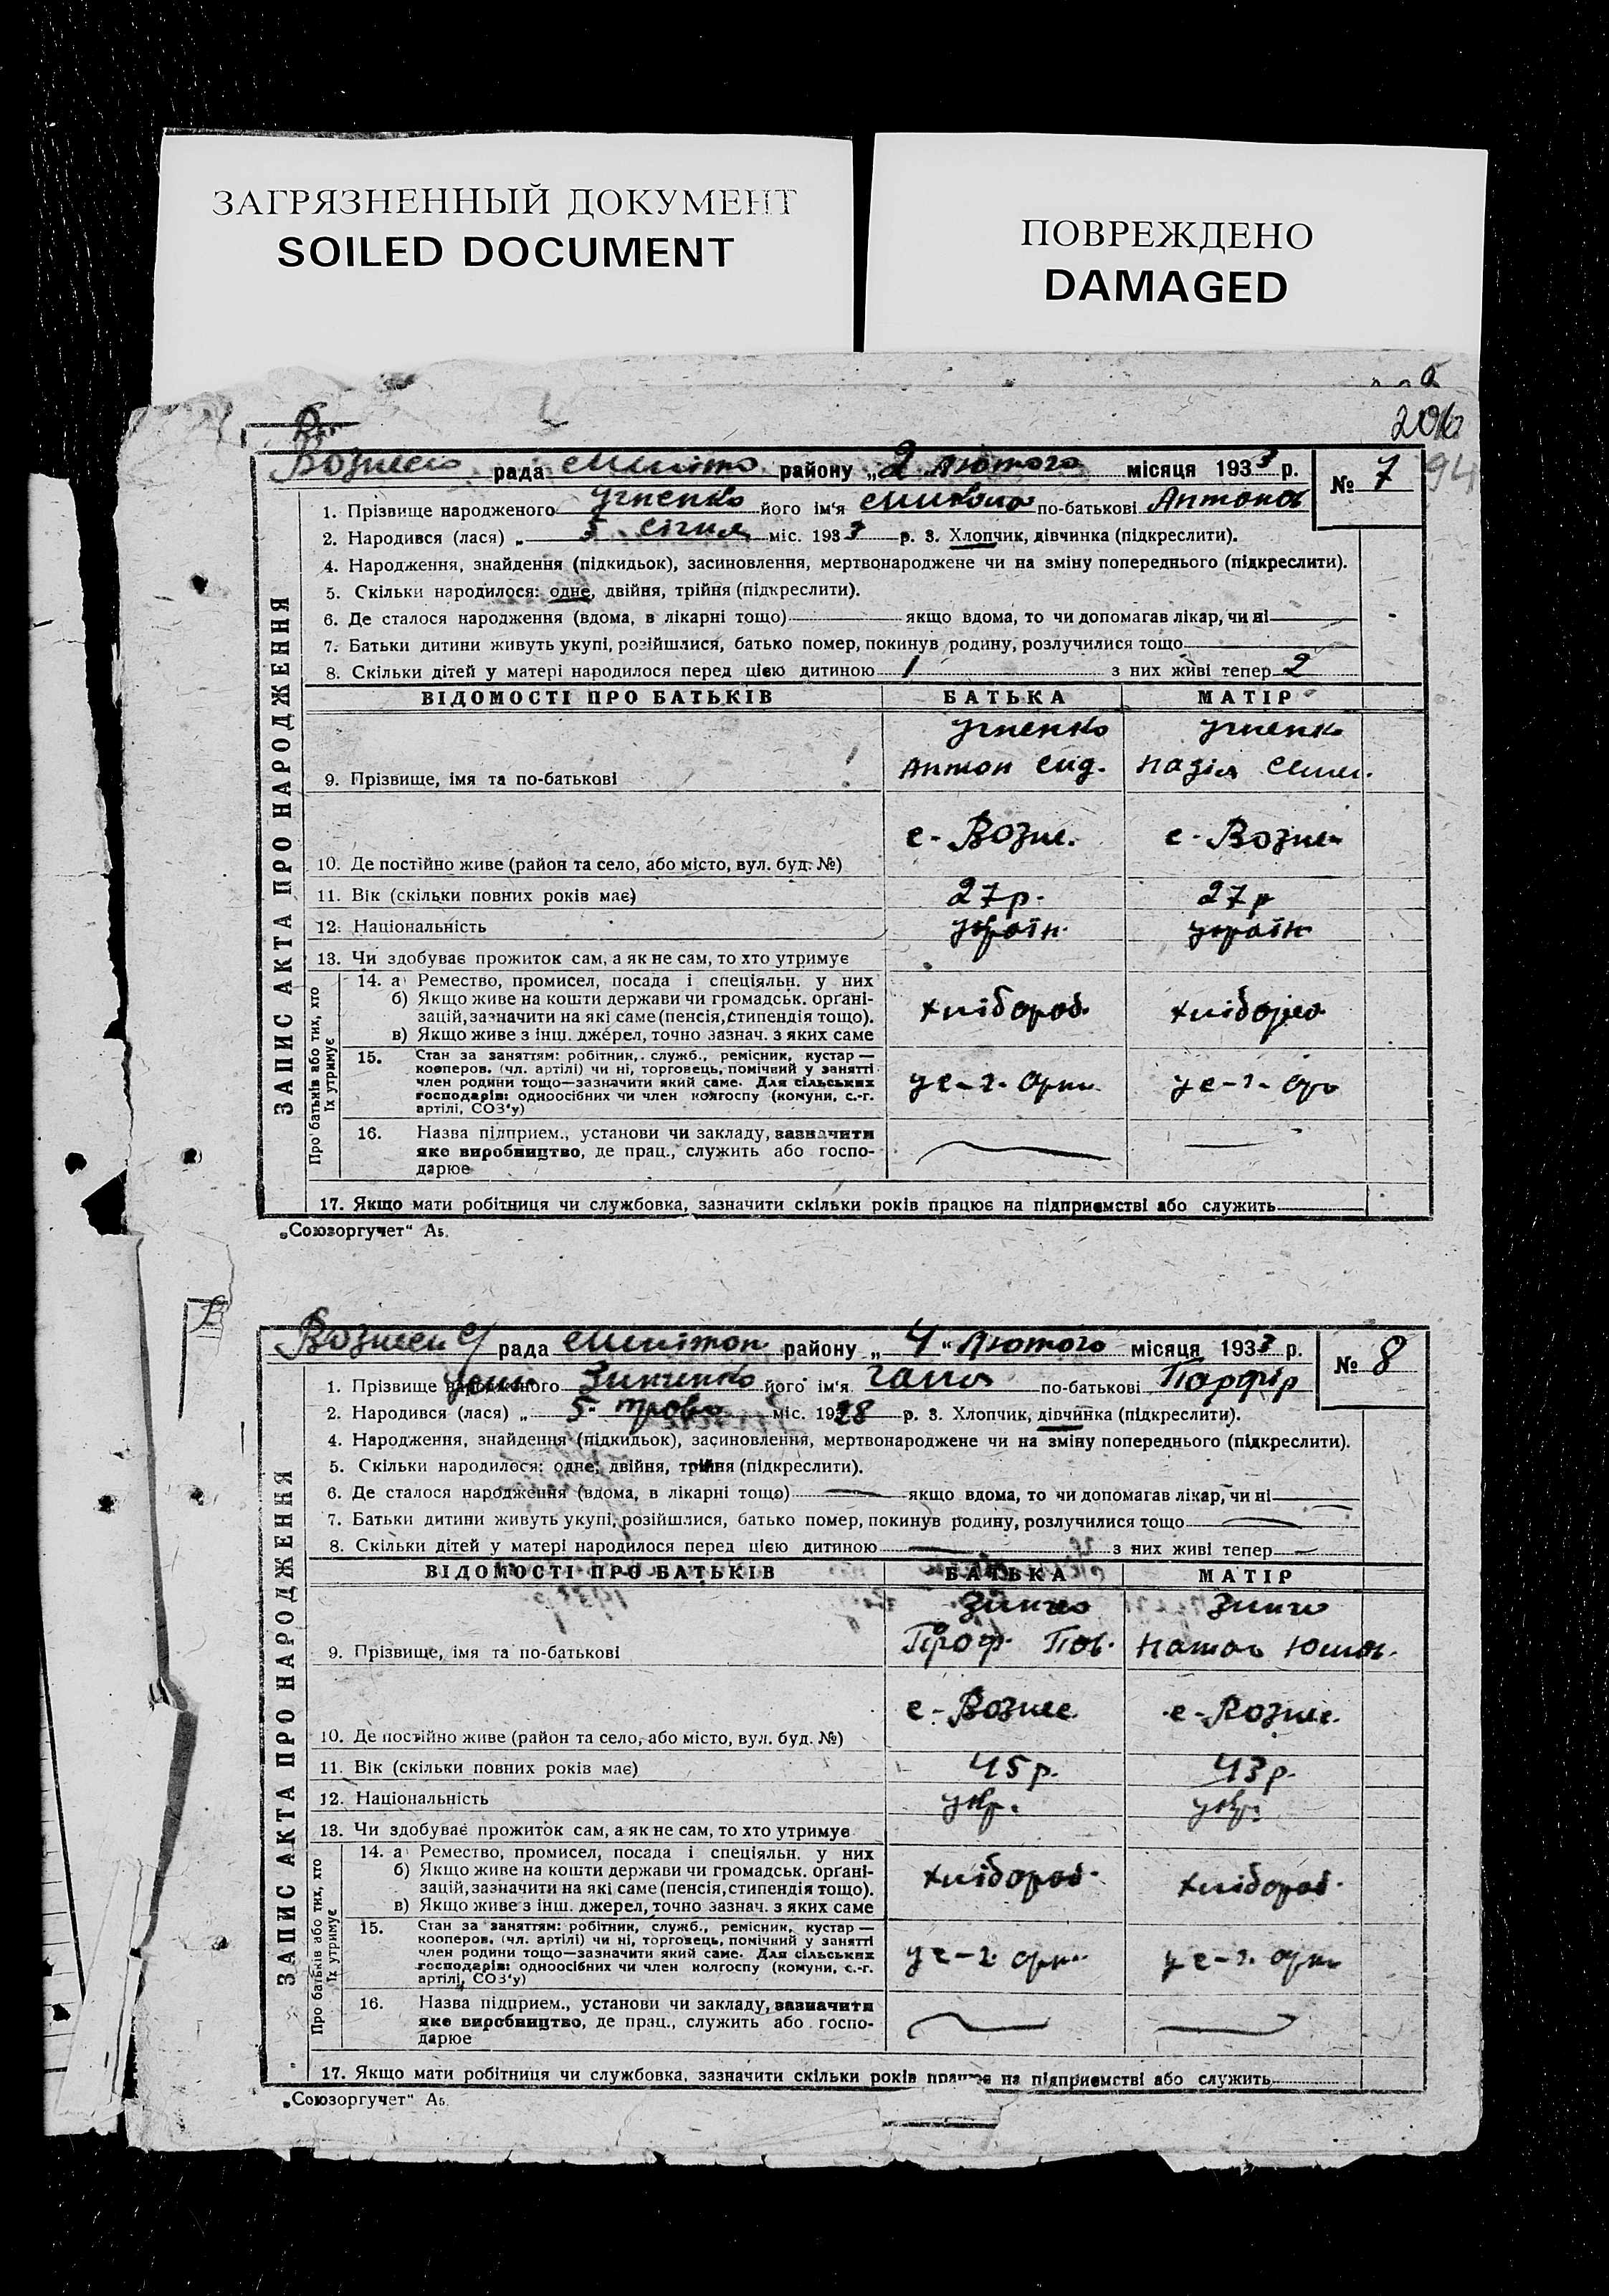 ЗАГРЯЗНЕННЫЙ ДОКУМЕНТ
SOILED DOCUMENT
ПОВРЕЖДЕНО
DAMAGED
206
94
рада района „2 лютого місяця 1933 р. № 7
1. Прізвище народженого його ім'я по-батькові Антонов
2. Народився (лася) „ 5 січня міс. 1933 р. 3. Хлопчик, дівчинка (підкреслити).
4. Народження, знайдення (підкидьок), засиновлення, мертвонароджене чи на зміну попереднього (підкреслити).
5. Скільки народилося: одне, двійня, трійня (підкреслити).
6. Де сталося народження (вдома, в лікарні тощо) якщо вдома, то чи допомагав лікар, чи ні
7. Батьки дитини живуть укупі, розійшлися, батько помер, покинув родину, розлучилися тощо
8. Скільки дітей у матері народилося перед цією дитиною 1 з них живі тепер 2
ВІДОМОСТІ ПРО БАТЬКІВ БАТЬКА МАТІР
Антон Сид. Надія Семен.
9. Прізвище, імя та по-батькові
с-Возне. с-Возне
10. Де постійно живе (район та село, або місто, вул. буд. №)
11. Вік (скільки повних років має) 27 р. 27 р
12. Національність україн. україн
13. Чи здобуває прожиток сам, а як не сам, то хто утримує
14. а) Ремество, промисел, посада і спеціяльн. у них
б) Якщо живе на кошти держави чи громадськ. орґані-
зацій, зазначити на які саме (пенсія, стипендія тощо). хлібороб
в) Якщо живе з інш. джерел, точно зазнач. з яких саме
15. Стан за заняттям: робітник, служб., ремісник, кустар —
кооперов. (чл. артілі) чи ні, торговець, помічний у занятті
член родини тощо—зазначити який саме. Для сільських
господарів: одноосібних чи член колгоспу (комуни, с.-г.
артілі, СОЗ'у)
16. Назва підприєм., установи чи закладу, зазначити
яке виробництво, де прац., служить або госпо-
дарює
17. Якщо мати робітниця чи службовка, зазначити скільки років працює на підприємстві або служить
ЗАПИС АКТА ПРО НАРОДЖЕННЯ
Про батьків або тих, хто
їх утримує
„Союзоргучет“ А5.
рада району „4“ Лютого місяця 1933 р. № 8
1. Прізвище народженого Зинченко його ім'я Гання по-батькові Парфір
2. Народився (лася) „ 5. трав міс. 1928 р. 3. Хлопчик, дівчинка (підкреслити).
4. Народження, знайдення (підкидьок), засиновлення, мертвонароджене чи на зміну попереднього (підкреслити).
5. Скільки народилося: одне, двійня, трійня (підкреслити).
6. Де сталося народження (вдома, в лікарні тощо) якщо вдома, то чи допомагав лікар, чи ні
7. Батьки дитини живуть укупі, розійшлися, батько помер, покинув родину, розлучилися тощо
8. Скільки дітей у матері народилося перед цією дитиною з них живі тепер
ВІДОМОСТІ ПРО БАТЬКІВ БАТЬКА МАТІР
9. Прізвище, імя та по-батькові
с-Возне с-Возне.
10. Де постійно живе (район та село, або місто, вул. буд. №)
11. Вік (скільки повних років має) 45 р. 43 р.
12. Національність укр. укр.
13. Чи здобуває прожиток сам, а як не сам, то хто утримує
14. а) Ремество, промисел, посада і спеціяльн. у них
б) Якщо живе на кошти держави чи громадськ. орґані-
зацій, зазначити на які саме (пенсія, стипендія тощо). хлібороб. хлібороб.
в) Якщо живе з інш. джерел, точно зазнач. з яких саме
15. Стан за заняттям: робітник, служб., ремісник, кустар —
кооперов. (чл. артілі) чи ні, торговець, помічний у занятті
член родини тощо—зазначити який саме. Для сільських
господарів: одноосібних чи член колгоспу (комуни, с.-г.
артілі, СОЗ'у)
16. Назва підприєм., установи чи закладу, зазначити
яке виробництво, де прац., служить або госпо-
дарює
17. Якщо мати робітниця чи службовка, зазначити скільки років працює на підприємстві або служить
ЗАПИС АКТА ПРО НАРОДЖЕННЯ
Про батьків або тих, хто
їх утримує
„Союзоргучет“ А5.